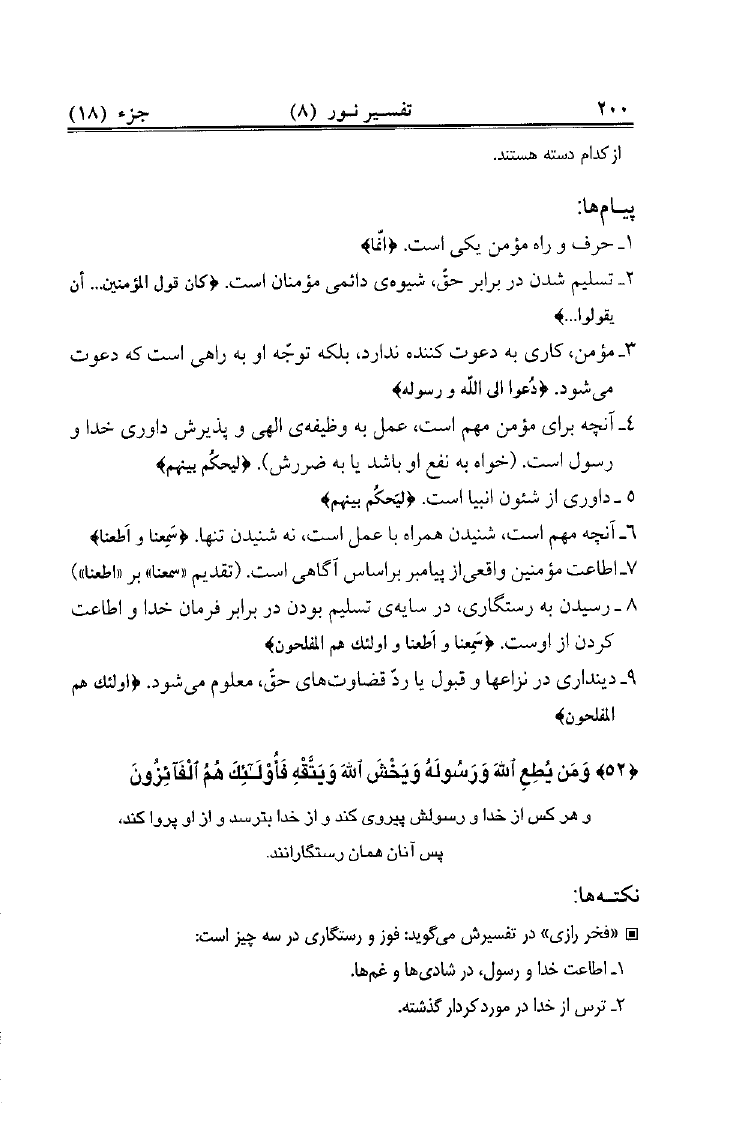 ۲۰۰ تفسیر نور (۸) جزء (۱۸)
از کدام دسته هستند.
پیام‌ها:
۱ـ حرف و راه مؤمن یکی است. ﴿انّما﴾
۲ـ تسلیم شدن در برابر حقّ، شیوه‌ی دائمی مؤمنان است. ﴿کان قول المؤمنین... أن
یقولوا...﴾
۳ـ مؤمن، کاری به دعوت کننده ندارد، بلکه توجّه او به راهی است که دعوت
می‌شود. ﴿دُعوا الی اللّه و رسوله﴾
٤ـ آنچه برای مؤمن مهم است، عمل به وظیفه‌ی الهی و پذیرش داوری خدا و
رسول است. (خواه به نفع او باشد یا به ضررش). ﴿لیحکُم بینهم﴾
٥ ـ داوری از شئون انبیا است. ﴿لیَحکُم بینهم﴾
٦ـ آنچه مهم است، شنیدن همراه با عمل است، نه شنیدن تنها. ﴿سَمِعنا و أطعنا﴾
۷ـ اطاعت مؤمنین واقعی از پیامبر براساس آگاهی است. (تقدیم «سمعنا» بر «اطعنا»)
۸ ـ رسیدن به رستگاری، در سایه‌ی تسلیم بودن در برابر فرمان خدا و اطاعت
کردن از اوست. ﴿سَمِعنا و أطعنا و اولئك هم المفلحون﴾
۹ـ دینداری در نزاعها و قبول یا ردّ قضاوت‌های حقّ، معلوم می‌شود. ﴿اولئك هم
المفلحون﴾
﴿٥۲﴾ وَمَن يُطِعِ ٱللَّهَ وَرَسُولَهُ وَيَخْشَ ٱللَّهَ وَيَتَّقْهِ فَأُوْلَـٰٓئِكَ هُمُ ٱلْفَآئِزُونَ
و هر کس از خدا و رسولش پیروی کند و از خدا بترسد و از او پروا کند،
پس آنان همان رستگارانند.
نکته‌ها:
▣ «فخر رازی» در تفسیرش می‌گوید: فوز و رستگاری در سه چیز است:
۱ـ اطاعت خدا و رسول، در شادی‌ها و غم‌ها.
۲ـ ترس از خدا در مورد کردار گذشته.